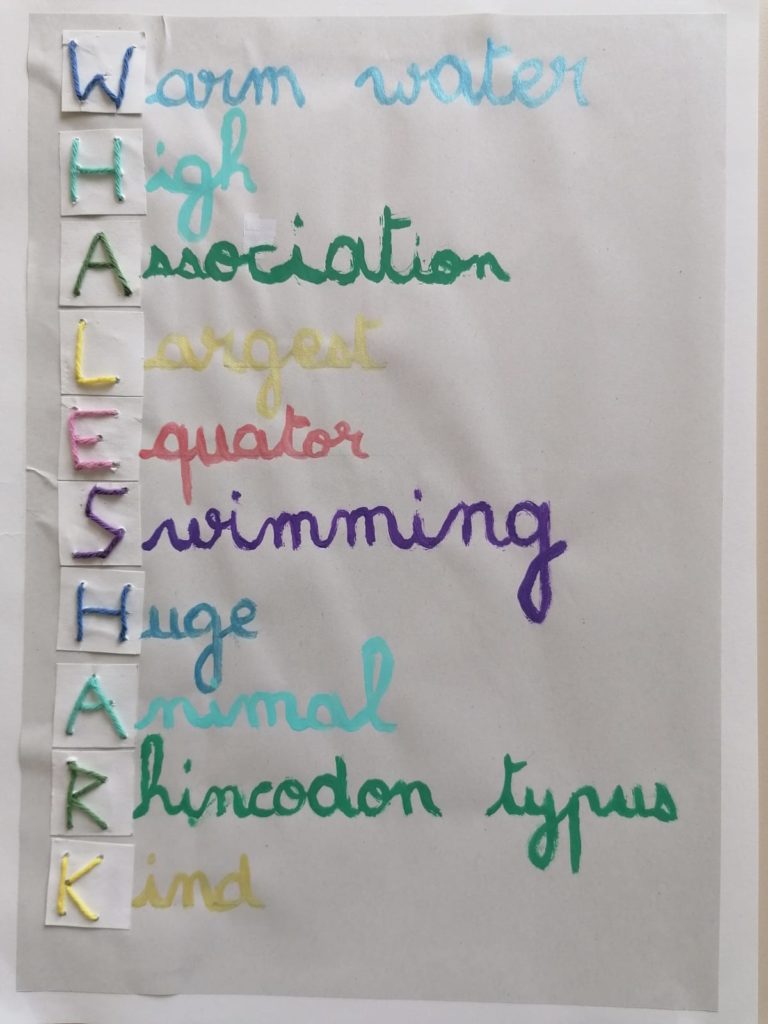 Warm water
High
Association
Largest
Equator
Swimming
Huge
Animal
Rhincodon typus
Kind